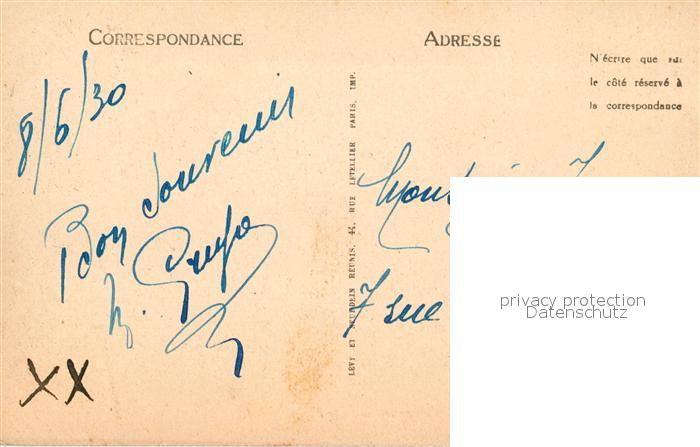 CORRESPONDANCE
8/6/30
Bon Souvenir
XX
LÉVY ET NEURDEIN RÉUNIS, 44, RUE LETELLIER PARIS, IMP.
ADRESSE
N'écrire que sur
le côté réservé à
la correspondance
7 rue
privacy protection
Datenschutz